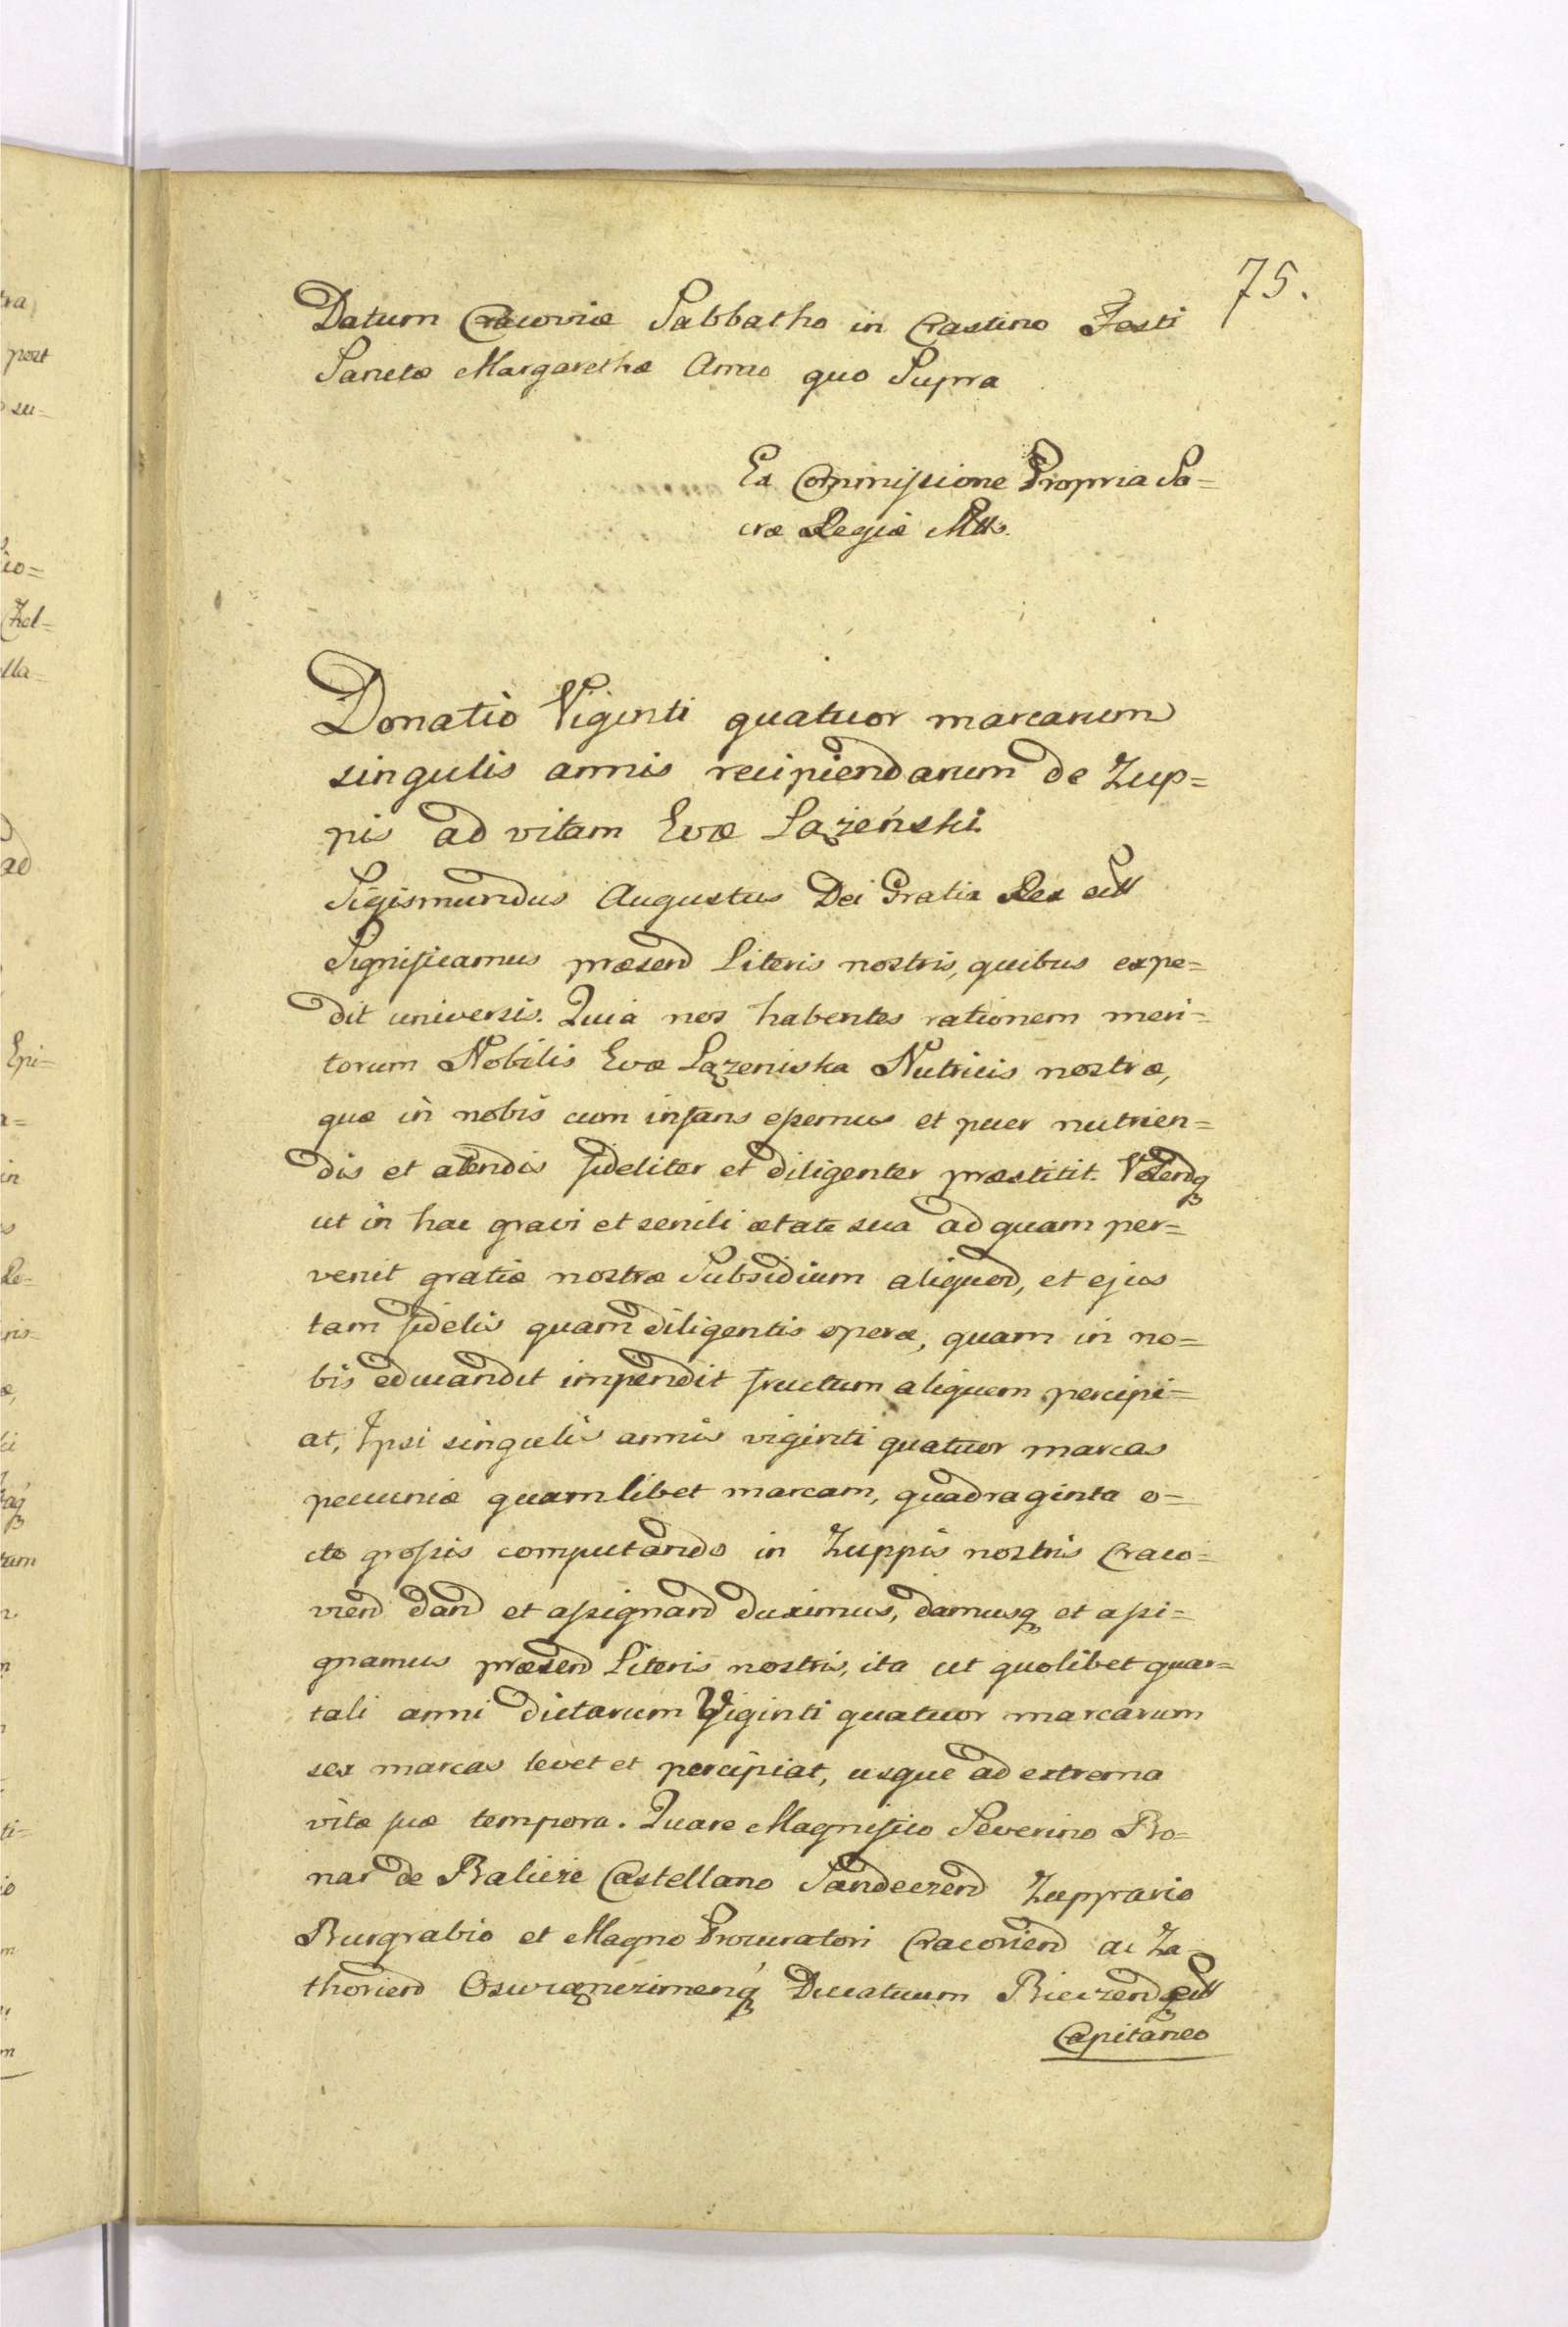 75.
Datum Cracoviæ Sabbatho in Crastino Festi
Sanctæ Margarethæ Anno quo Supra
Ex Commissione Propria Sa=
cræ Regiæ Mttis.
Donatio Viginti quatuor marcarum
singulis annis recipiendarum de Zup=
pis ad vitam Evæ Łążeński.
Sigismundus Augustus Dei Gratia Rex ett
Significamus præsend Literis nostris, quibus expe=
dit universis. Quia nos habentes rationem meri=
torum Nobilis Evæ Lązeniska Nutricis nostræ,
quæ in nobis cum infans essemus et puer nutrien=
dis et alendis fideliter et diligenter præstitit. Volendq
ut in hac gravi et senili ætate sua ad quam per=
venit gratiæ nostræ Subsidium aliquod, et ejus
tam fidelis quam diligentis operæ, quam in no=
bis educandit impendit fructum aliquem percipi=
at, Ipsi singulis annis viginti quatuor marcas
pecuniæ quamlibet marcam, quadraginta o=
cto grossis computando in Zuppis nostris Craco=
viend dand et assignand duximus, damusq et assi=
gnamus præsend Literis nostris, ita ut quolibet quar=
tali anni dictarum Viginti quatuor marcarum
sex marcas levet et percipiat, usque ad extrema
vitæ suæ tempora. Quare Magnifico Severino Bo=
nar de Balicze Castellano Sandeczend Zuppario
Burgrabio et Magno Procuratori Cracoviend ac Za=
thoriend Oswięnczimenq Ducatuum Bieczendq ett
Capitaneo
ra
post
su=
io=
Zel=
lla=
ad
Epi=
in
Re=
ris=
tum
ti=